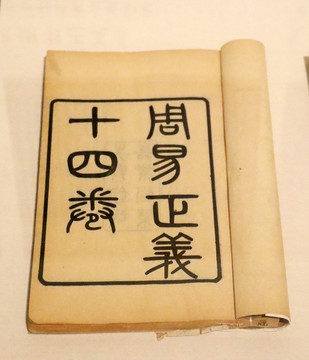 周易正義
十四卷